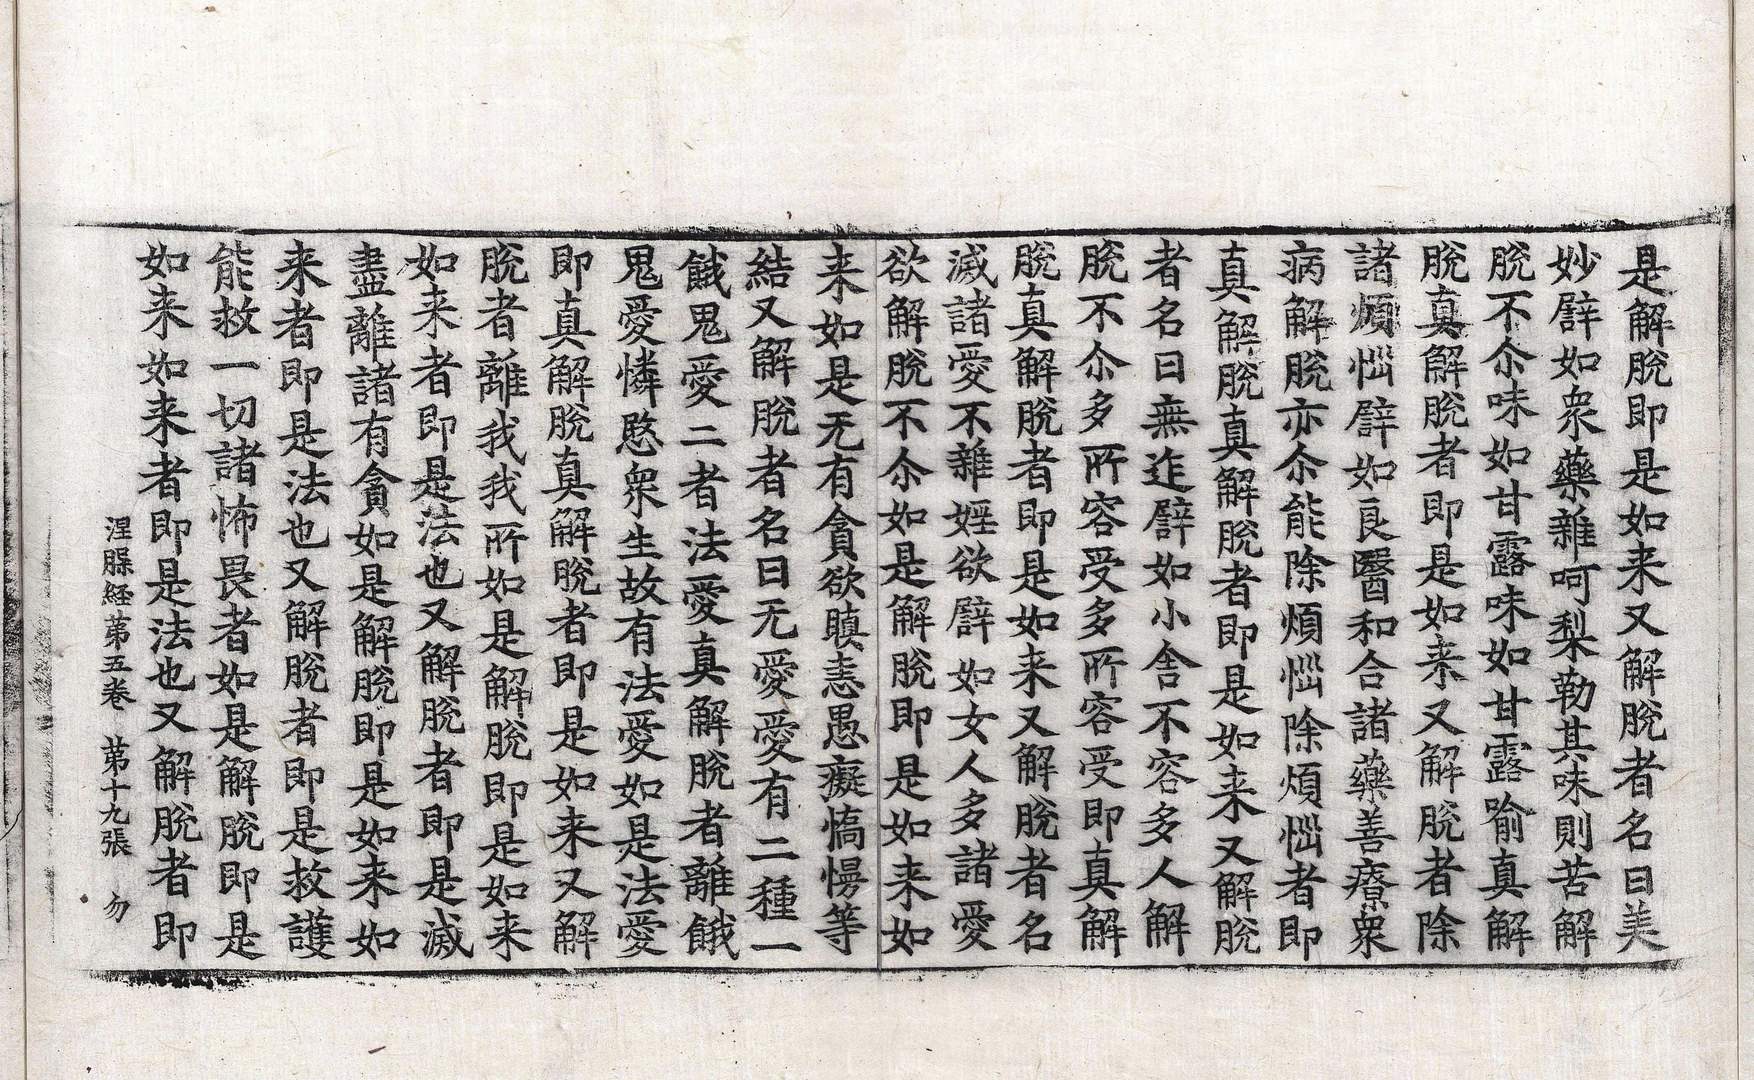 是解脫即是如来又解脫者名曰美
妙譬如衆藥雜呵梨勒其味則苦解
脫不尒味如甘露味如甘露喻真解
脫真解脫者即是如来又解脫者除
諸煩惱譬如良醫和合諸藥善療衆
病解脫亦尒能除煩惱除煩惱者即
真解脫真解脫者即是如来又解脫
者名曰無迮譬如小舍不容多人解
脫不尒多所容受多所容受即真解
脫真解脫者即是如来又解脫者名
滅諸愛不雜婬欲譬如女人多諸愛
欲解脫不尒如是解脫即是如来如
来如是无有貪欲瞋恚愚癡憍慢等
結又解脫者名曰无愛愛有二種一
餓鬼愛二者法愛真解脫者離餓
鬼愛憐愍衆生故有法愛如是法愛
即真解脫真解脫者即是如来又解
脫者離我我所如是解脫即是如来
如来者即是法也又解脫者即是滅
盡離諸有貪如是解脫即是如来如
来者即是法也又解脫者即是救護
能救一切諸怖畏者如是解脫即是
如来如来者即是法也又解脫者即
涅槃経苐五卷 苐十九張 勿